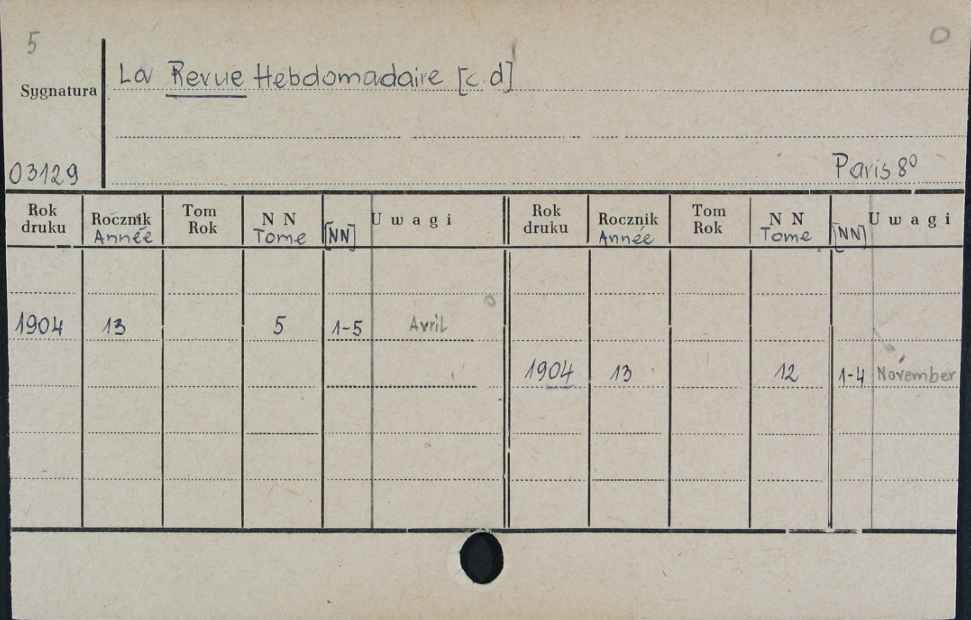 5
O
La Revue Hebdomadaire [c.d]
Sygnatura
03129
Paris 8º
Rok druku Rocznik Année Tom Rok N N Tome [NN] Uwagi Rok druku Rocznik Année Tom Rok N N Tome [NN] Uwagi
1904 13 5 1-5 Avril
1904 13 12 1-4 November